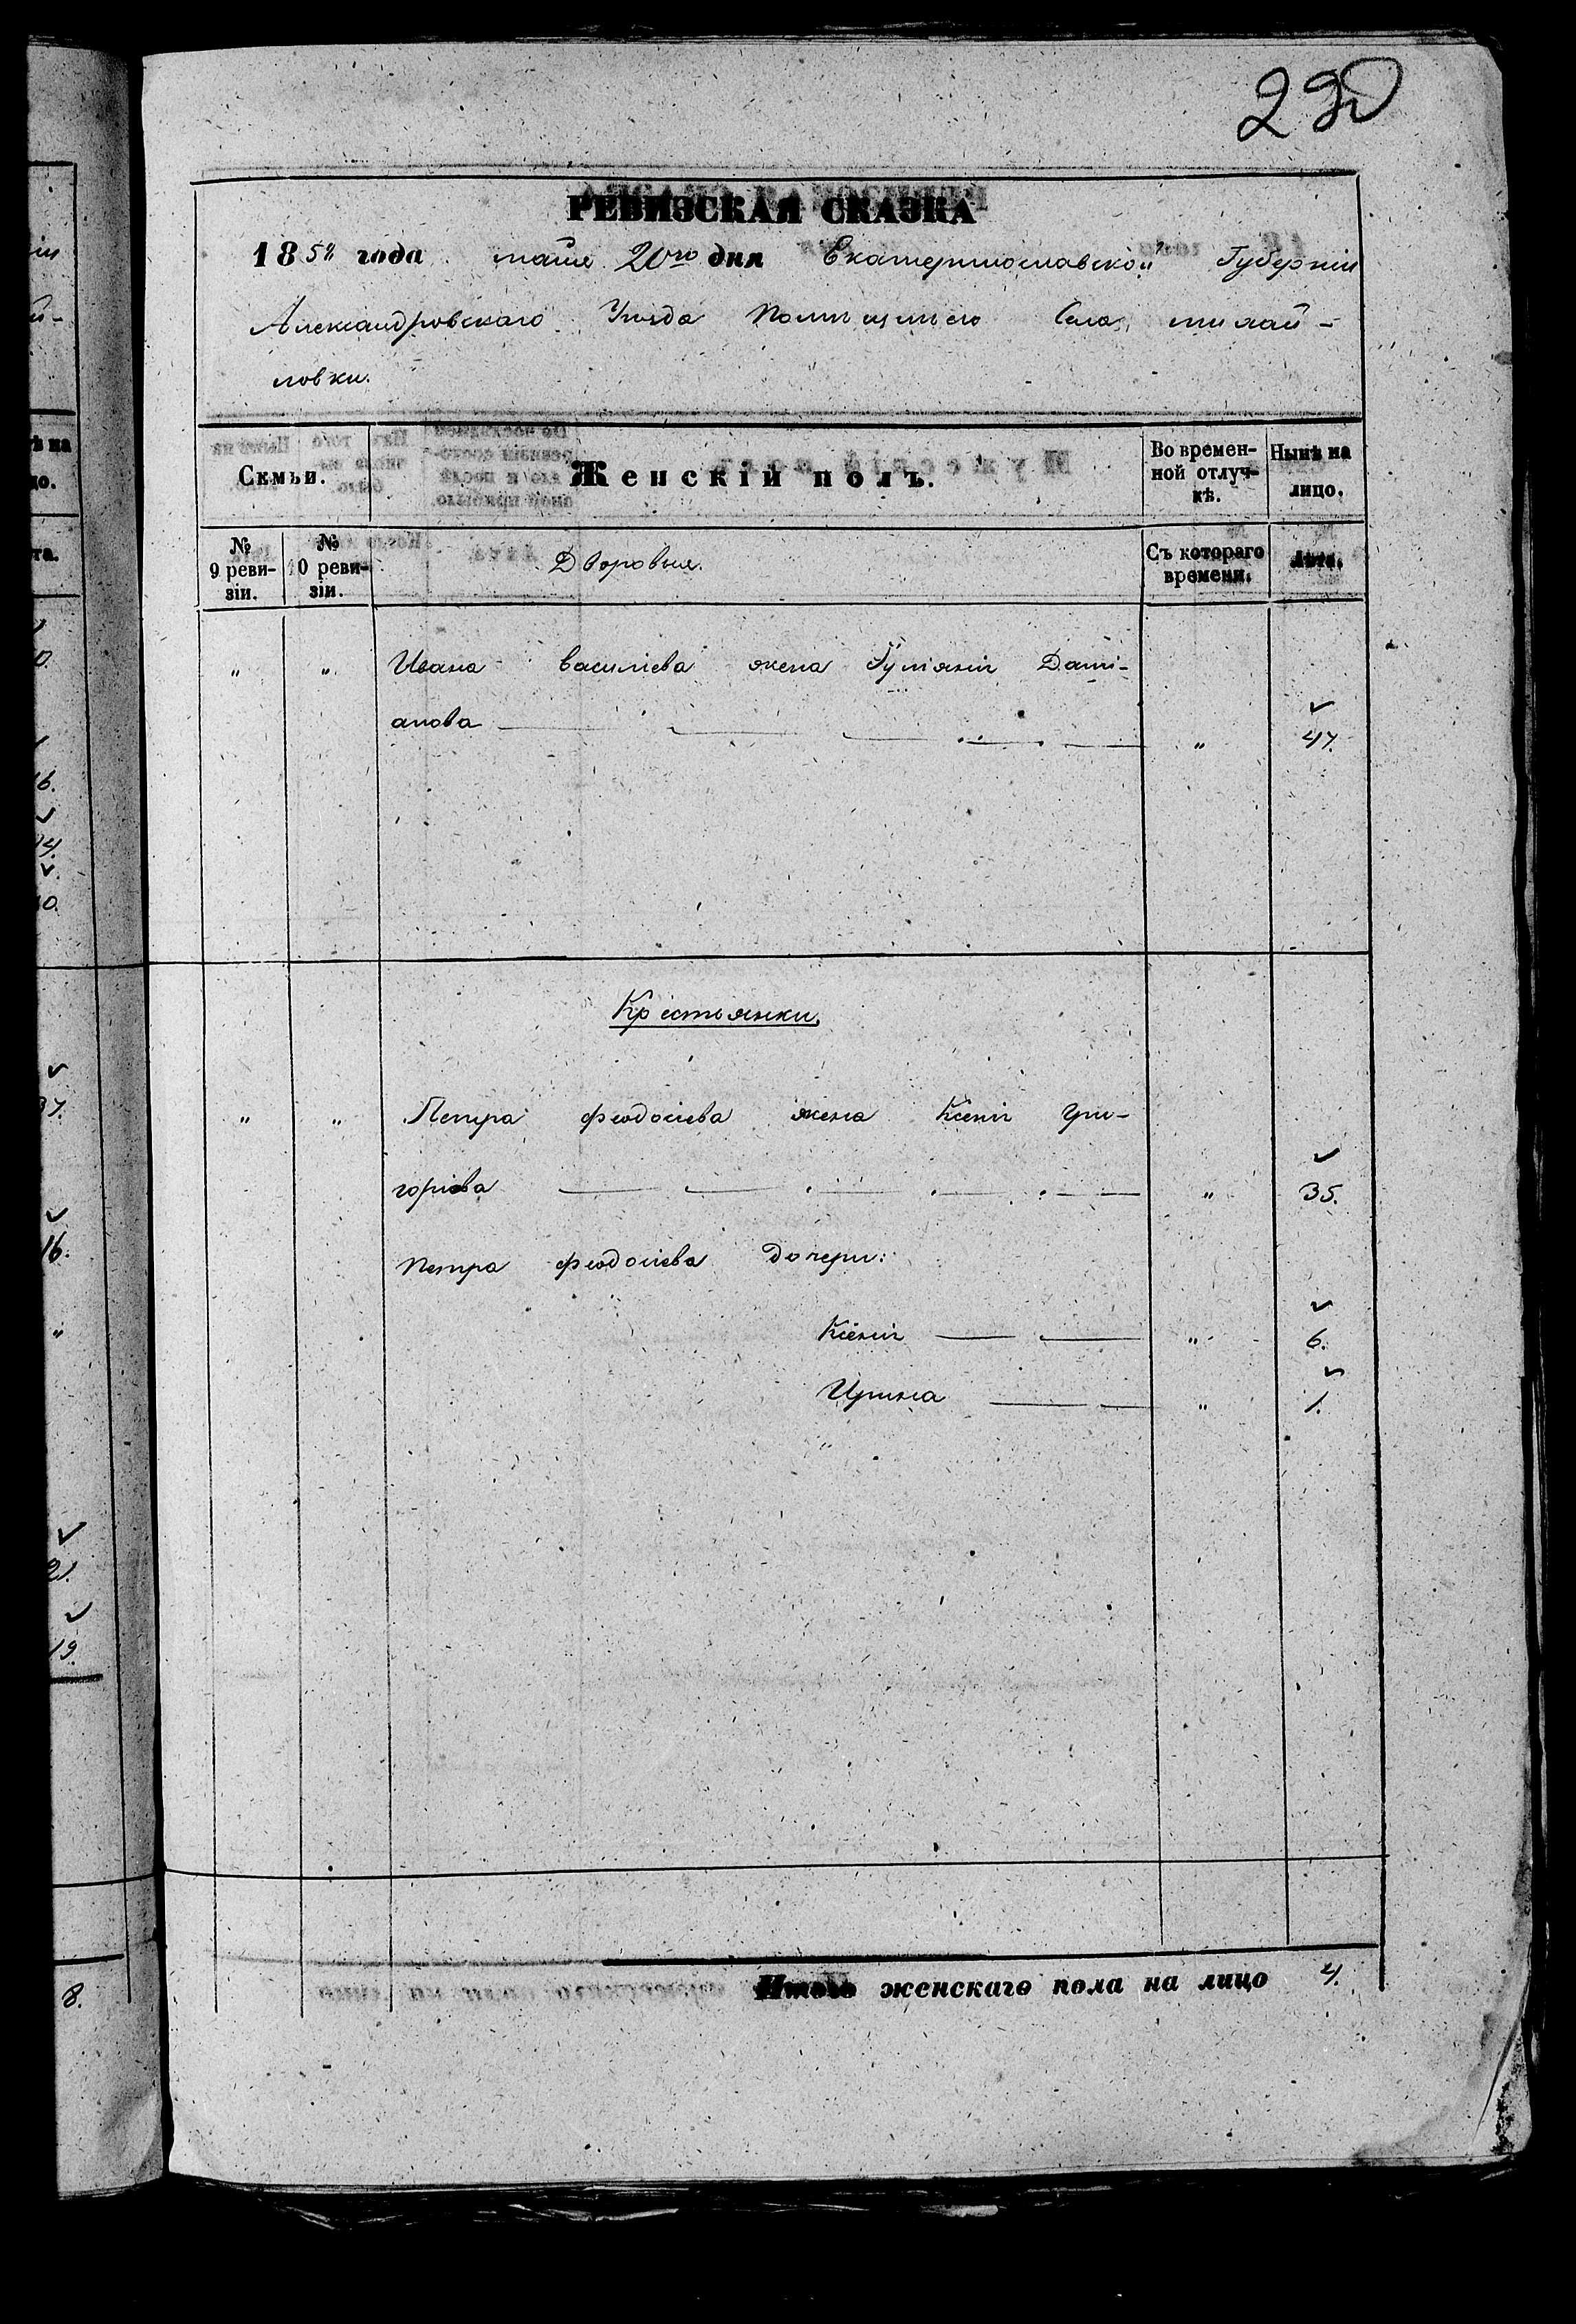 230
РЕВИЗСКАЯ СКАЗКА
1858 года маія 20го дня Екатеринославской Губерніи
Александровскаго Уѣзда Села михай-
ловки.
Семьи.
Женскій полъ.
Во времен-
ной отлуч-
кѣ.
Нынѣ на
лицо.
№
9 реви-
зіи.
№
10 реви-
зіи.
Дворовые.
Съ котораго
времени.
Лѣта.
„ „ Ивана Василіева жена Дамі-
анова „ 47.
Крестьянки.
„ „ Петра Феодосіева жена Ксенія Гри-
горіева „ 35.
Петра Феодосіева дочери:
Ксенія „ 6.
Ирина „ 1.
Итого женскаго пола на лицо 4.